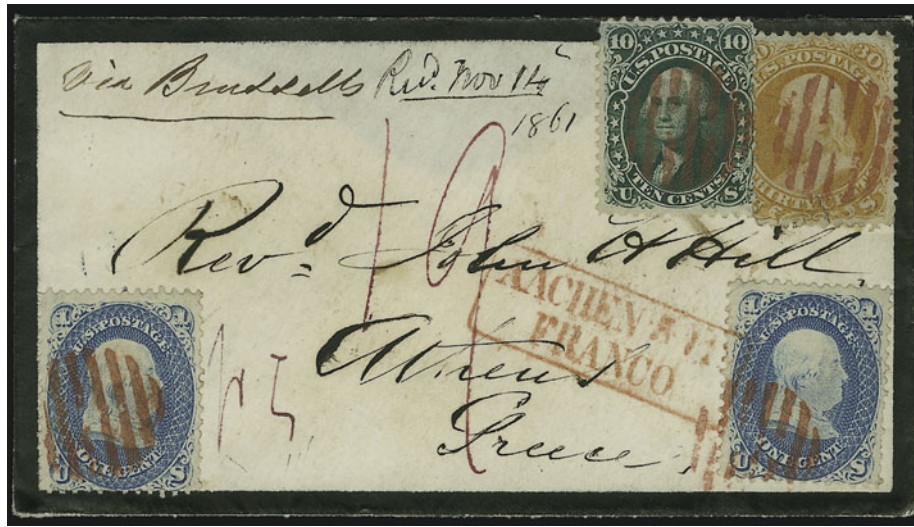 via Brussells Recd. Nov 14
1861
10 10
U.S. POSTAGE
U S
TEN CENTS
30
U.S. POSTAGE
THIRTY CENTS
S
19
Rev.d John H Hill
AACHEN
FRANCO
Athens
Greece
1 1
U.S. POSTAGE
U S
ONE CENT
1 1
U.S. POSTAGE
U S
ONE CENT